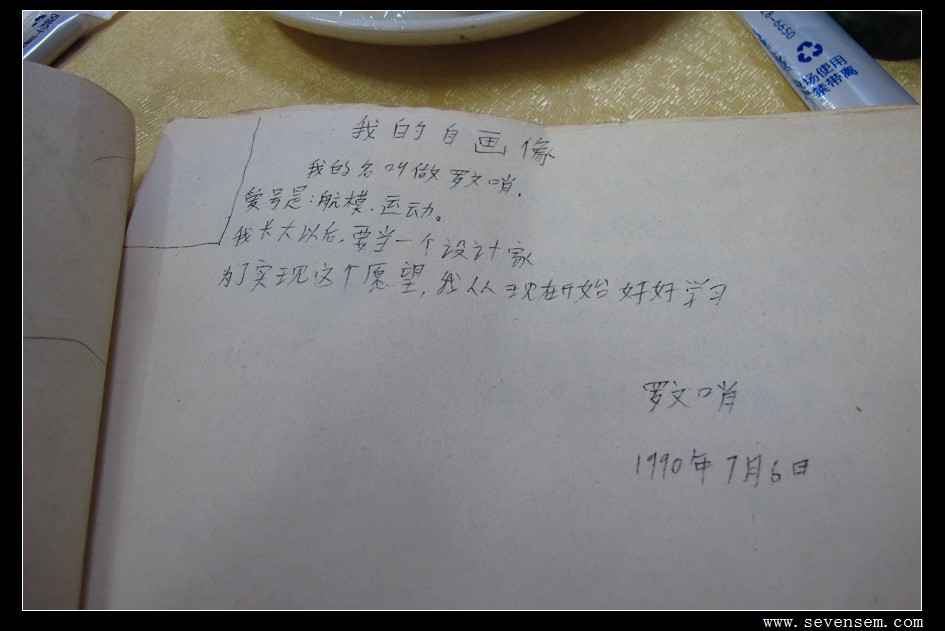 28-6650
场使用
禁带离
我的自画像
我的名叫做罗文哨.
爱号是:航模.运动。
我长大以后,要当一个设计家
为了实现这个愿望,我从现在开始好好学习
罗文哨
1990年7月6日
www.sevensem.com